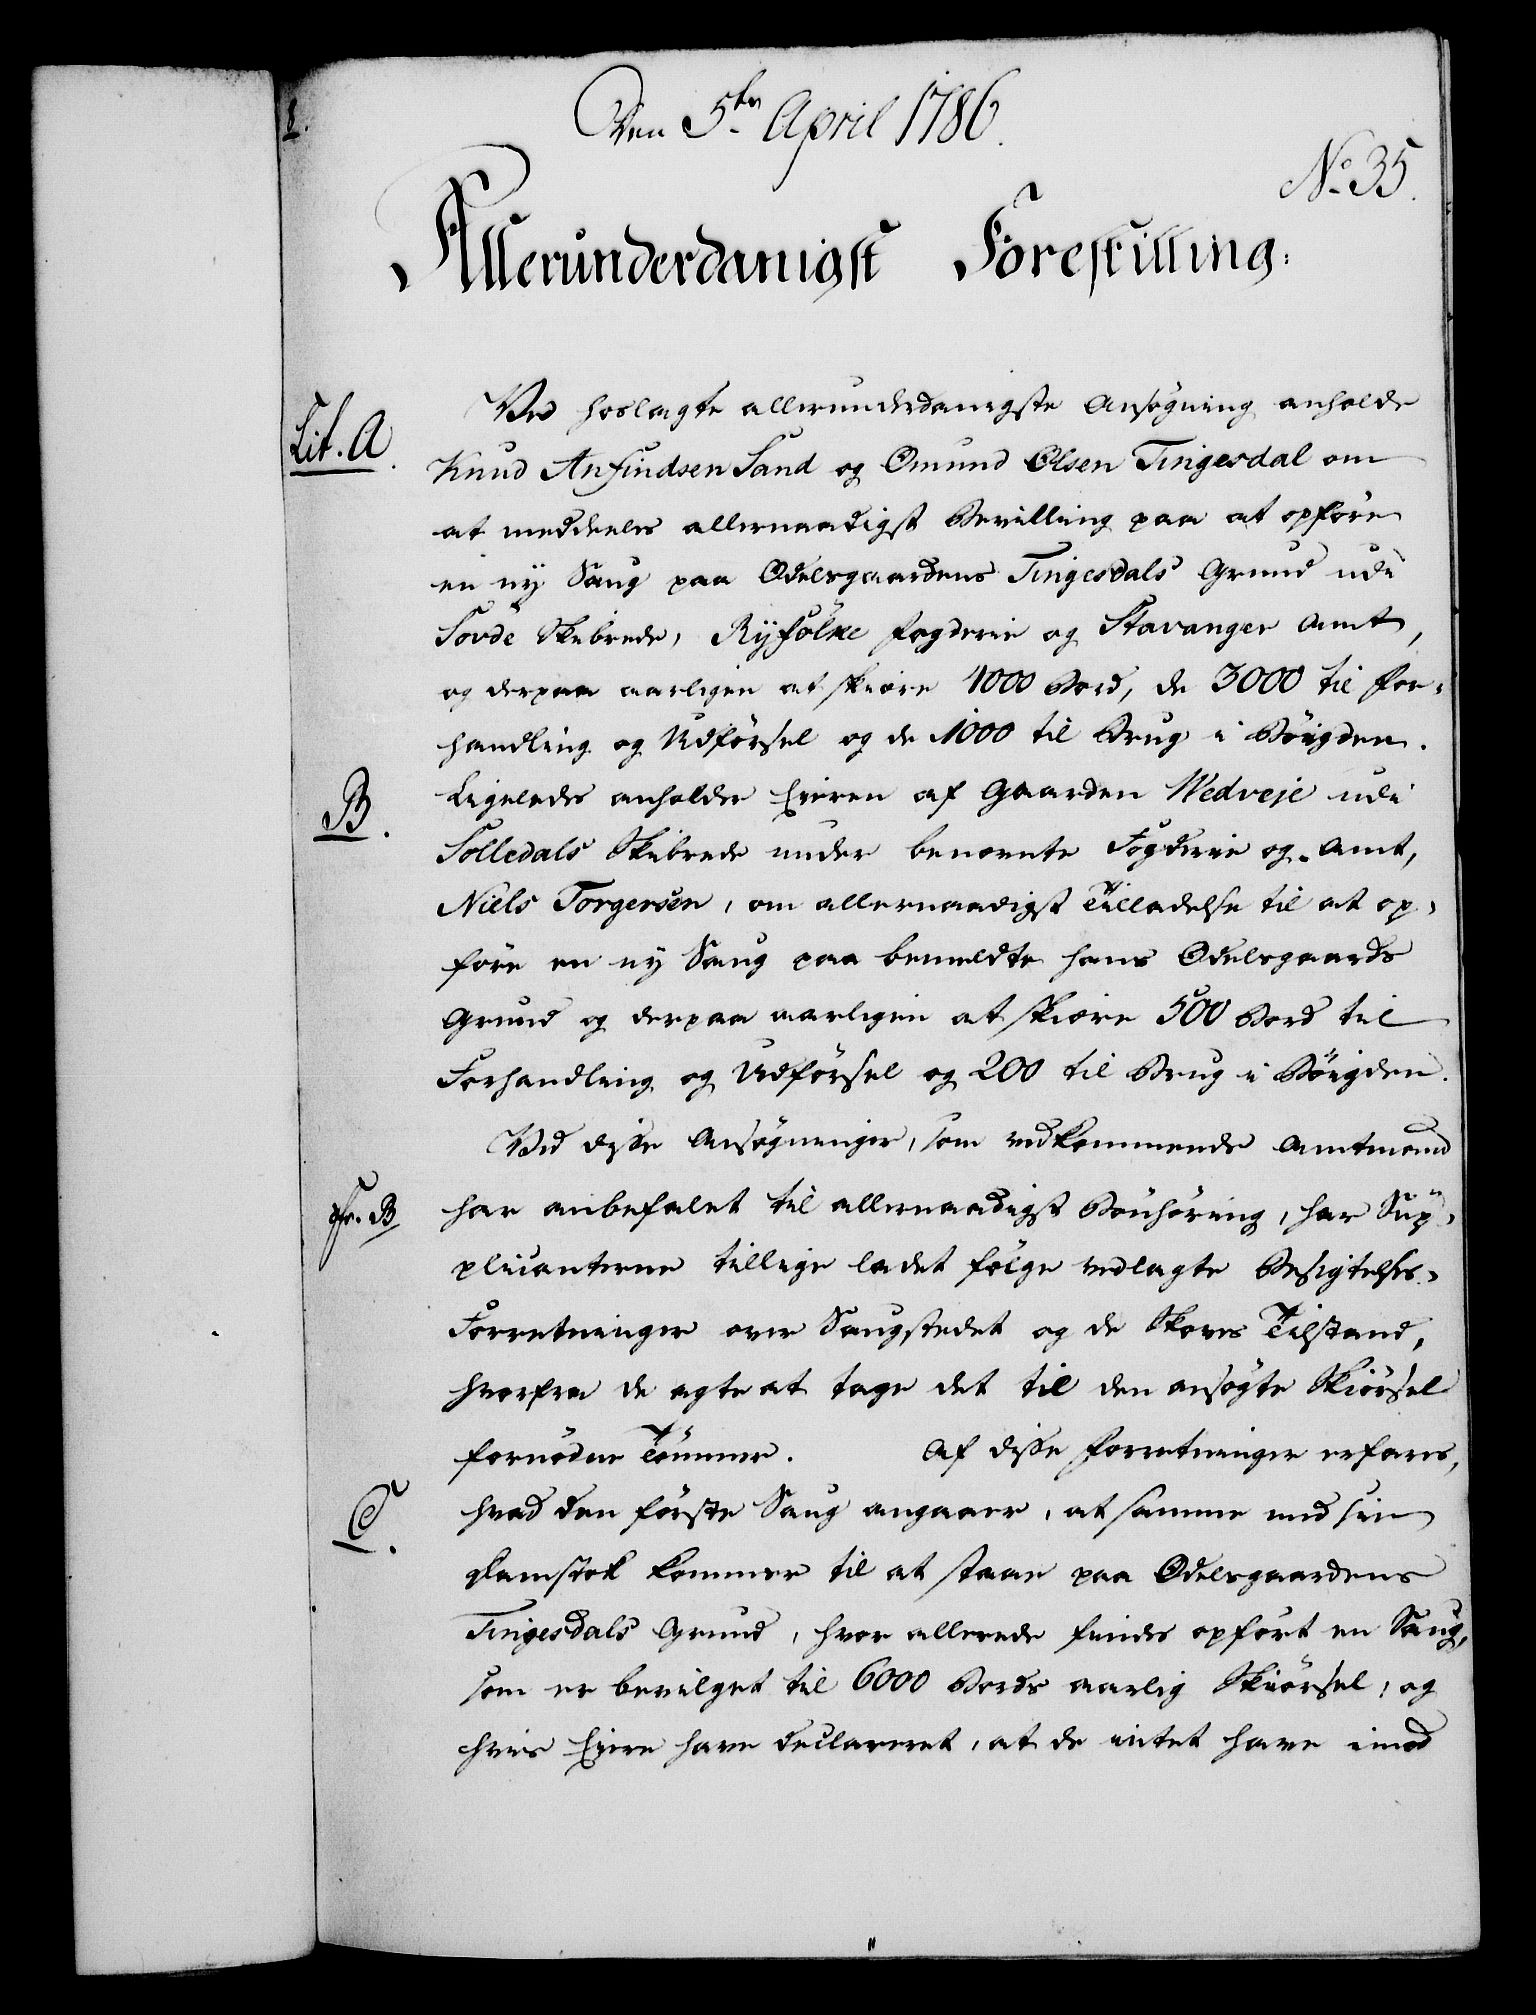 Den 5te April 1786.
No 35.
Allerunderdanigst Forestilling:
Lit. A.
Ved hoslagte allerunderdanigste Ansøgning anholde
Knud Anfindsen Sand og Omund Olsen Tingesdal om
at meddeeles allernaadigst Bevilling paa at opføre
en ny Saug paa Odelsgaardens Tingesdals Grund udi
Sovde Skibrede, Ryfölke Fogderie og Stavanger Amt,
og derpaa aarligen at skiære 4000 Bord, de 3000 til For-
handling og Udførsel og de 1000 til Brug i Böigden.
B.
Ligeledes anholder Eieren af Gaarden Wedveje udi
Solledals Skibrede under benævnte Fogderie og Amt,
Niels Torgersen, om allernaadigst Tilladelse til at op-
føre en ny Saug paa bemeldte hans Odelsgaards
Grund og derpaa aarligen at skiære 500 Bord til
Forhandling og Udførsel og 200 til Brug i Böigden.
Ved disse Ansøgninger, som vedkommende Amtmand
har anbefalet til allernaadigst Bönhøring, har Sup-
plicanterne tillige ladet følge vedlagte Besigtelses-
Forretninger over Saugstedet og de Skoves Tilstand,
hvorfra de agte at tage det til den ansøgte Skiørsel
fornødne Tømmer. Af disse Forretninger erfares,
C.
hvad den første Saug angaaer, at samme med sin
Damstok kommer til at staae paa Odelsgaardens
Tingesdals Grund, hvor allerede findes opført en Saug,
som er bevilget til 6000 Bords aarlig Skiørsel, og
hvis Eiere have declareret, at de intet have imod